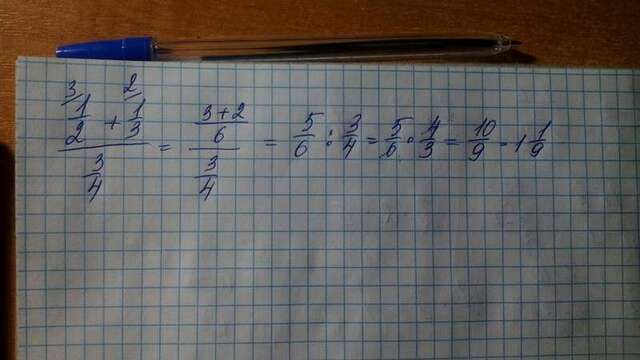 (1/2 (3/) + 1/3 (2/)) / (3/4) = ((3+2)/6) / (3/4) = 5/6 : 3/4 = 5/6 · 4/3 = 10/9 = 1 1/9